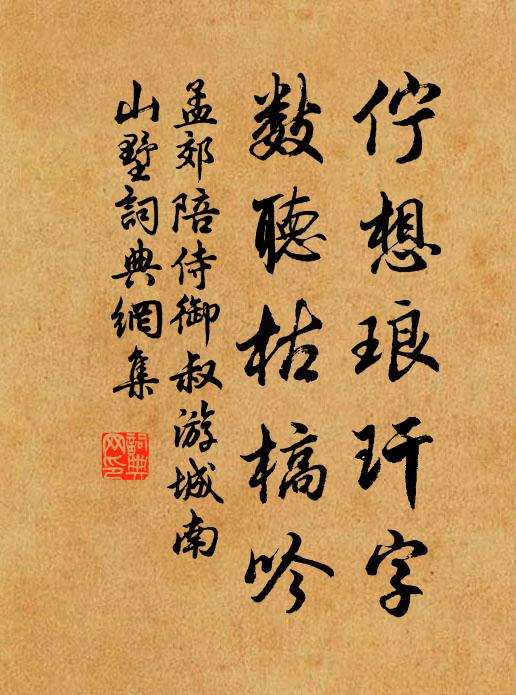 佇想琅玕字
數聽枯槁吟
孟郊陪侍御叔游城南
山墅詞典網集
詞典網印